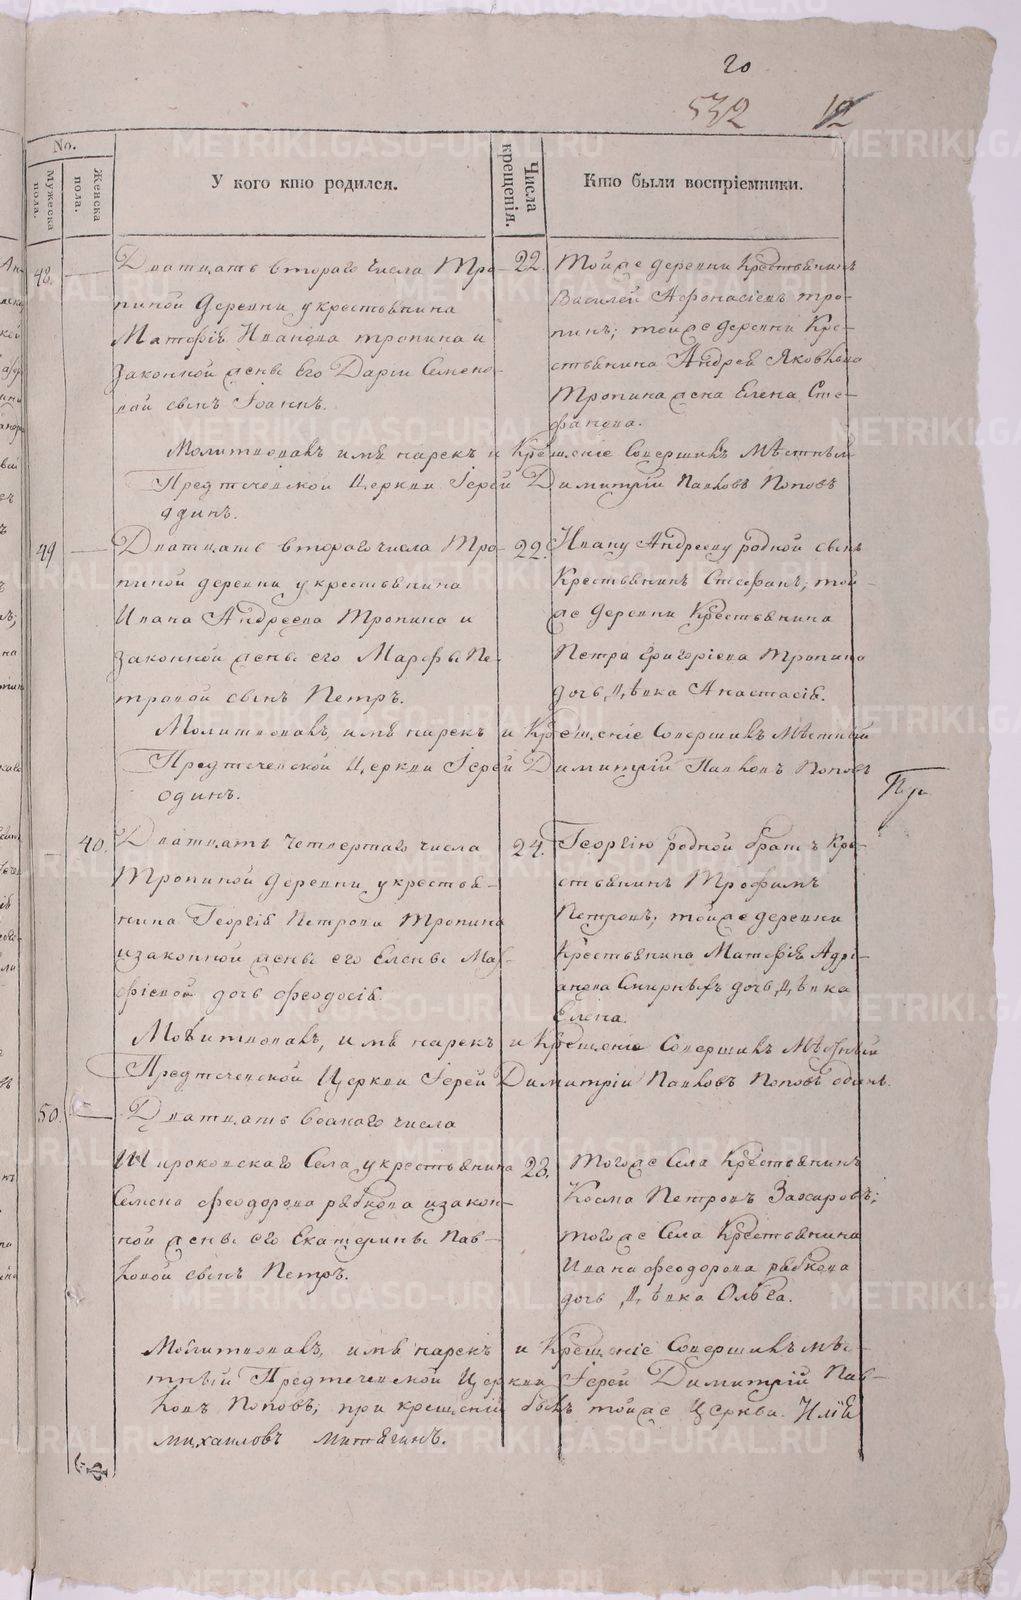 20
532 12
No.
Мужеска пола.
Женска пола.
У кого кто родился.
Числа крещенія.
Кто были воспріемники.
48.
Дватцать втораго числа Тро-
пиной деревни у крестьянина
Матфѣя Иванова Тропина и
законной жены его Дарьи Семено-
вой сынъ Іоаннъ.
22.
Тойже деревни крестьянинъ
Василей Афонасіевъ Тро-
пинъ; тойже деревни кре-
стьянина Андрея Яковлева
Тропина жена Елена Сте-
фанова.
Молитвовалъ имя нарекъ и крещеніе совершилъ мѣстный
Предтечевской Церкви Іерей Димитрій Павловъ Поповъ
одинъ.
49
Дватцать втораго числа Тро-
пиной деревни у крестьянина
Ивана Андреева Тропина и
законной жены его Марфы Пе-
тровой сынъ Петръ.
22.
Ивану Андрееву родной сынъ
крестьянинъ Стефанъ; той-
же деревни крестьянина
Петра Григоріева Тропина
дочь дѣвка Анастасія.
Молитвовалъ, имя нарекъ и крещеніе совершилъ мѣстный
Предтечевской Церкви Іерей Димитрій Павловъ Поповъ
одинъ.
40.
Дватцать четвертаго числа
Тропиной деревни у крестья-
нина Георгія Петрова Тропина
и законной жены его Елены Мат-
фіевой дочь Феодосія.
24.
Георгію родной братъ кре-
стьянинъ Трофимъ
Петровъ; тойже деревни
крестьянина Матфѣя Адрі-
анова Смирныхъ дочь дѣвка
Елена.
Молитвовалъ, имя нарекъ и крещеніе совершилъ мѣстный
Предтечевской Церкви Іерей Димитрій Павловъ Поповъ одинъ.
50.
Дватцать числа
Широковскаго Села у крестьянина
Семена Феодорова Рябкова и закон-
ной жены его Екатерины Пав-
ловой сынъ Петръ.
23.
Тогоже Села крестьянинъ
Косма Петровъ Захаровъ;
тогоже Села крестьянина
Ивана Феодорова Рябкова
дочь дѣвка Ольга.
Молитвовалъ, имя нарекъ и крещеніе совершилъ мѣ-
стный Предтечевской Церкви Іерей Димитрій Пав-
ловъ Поповъ; при крещеніи былъ тойже Церкви
Михаиловъ
METRIKI.GASO-URAL.RU